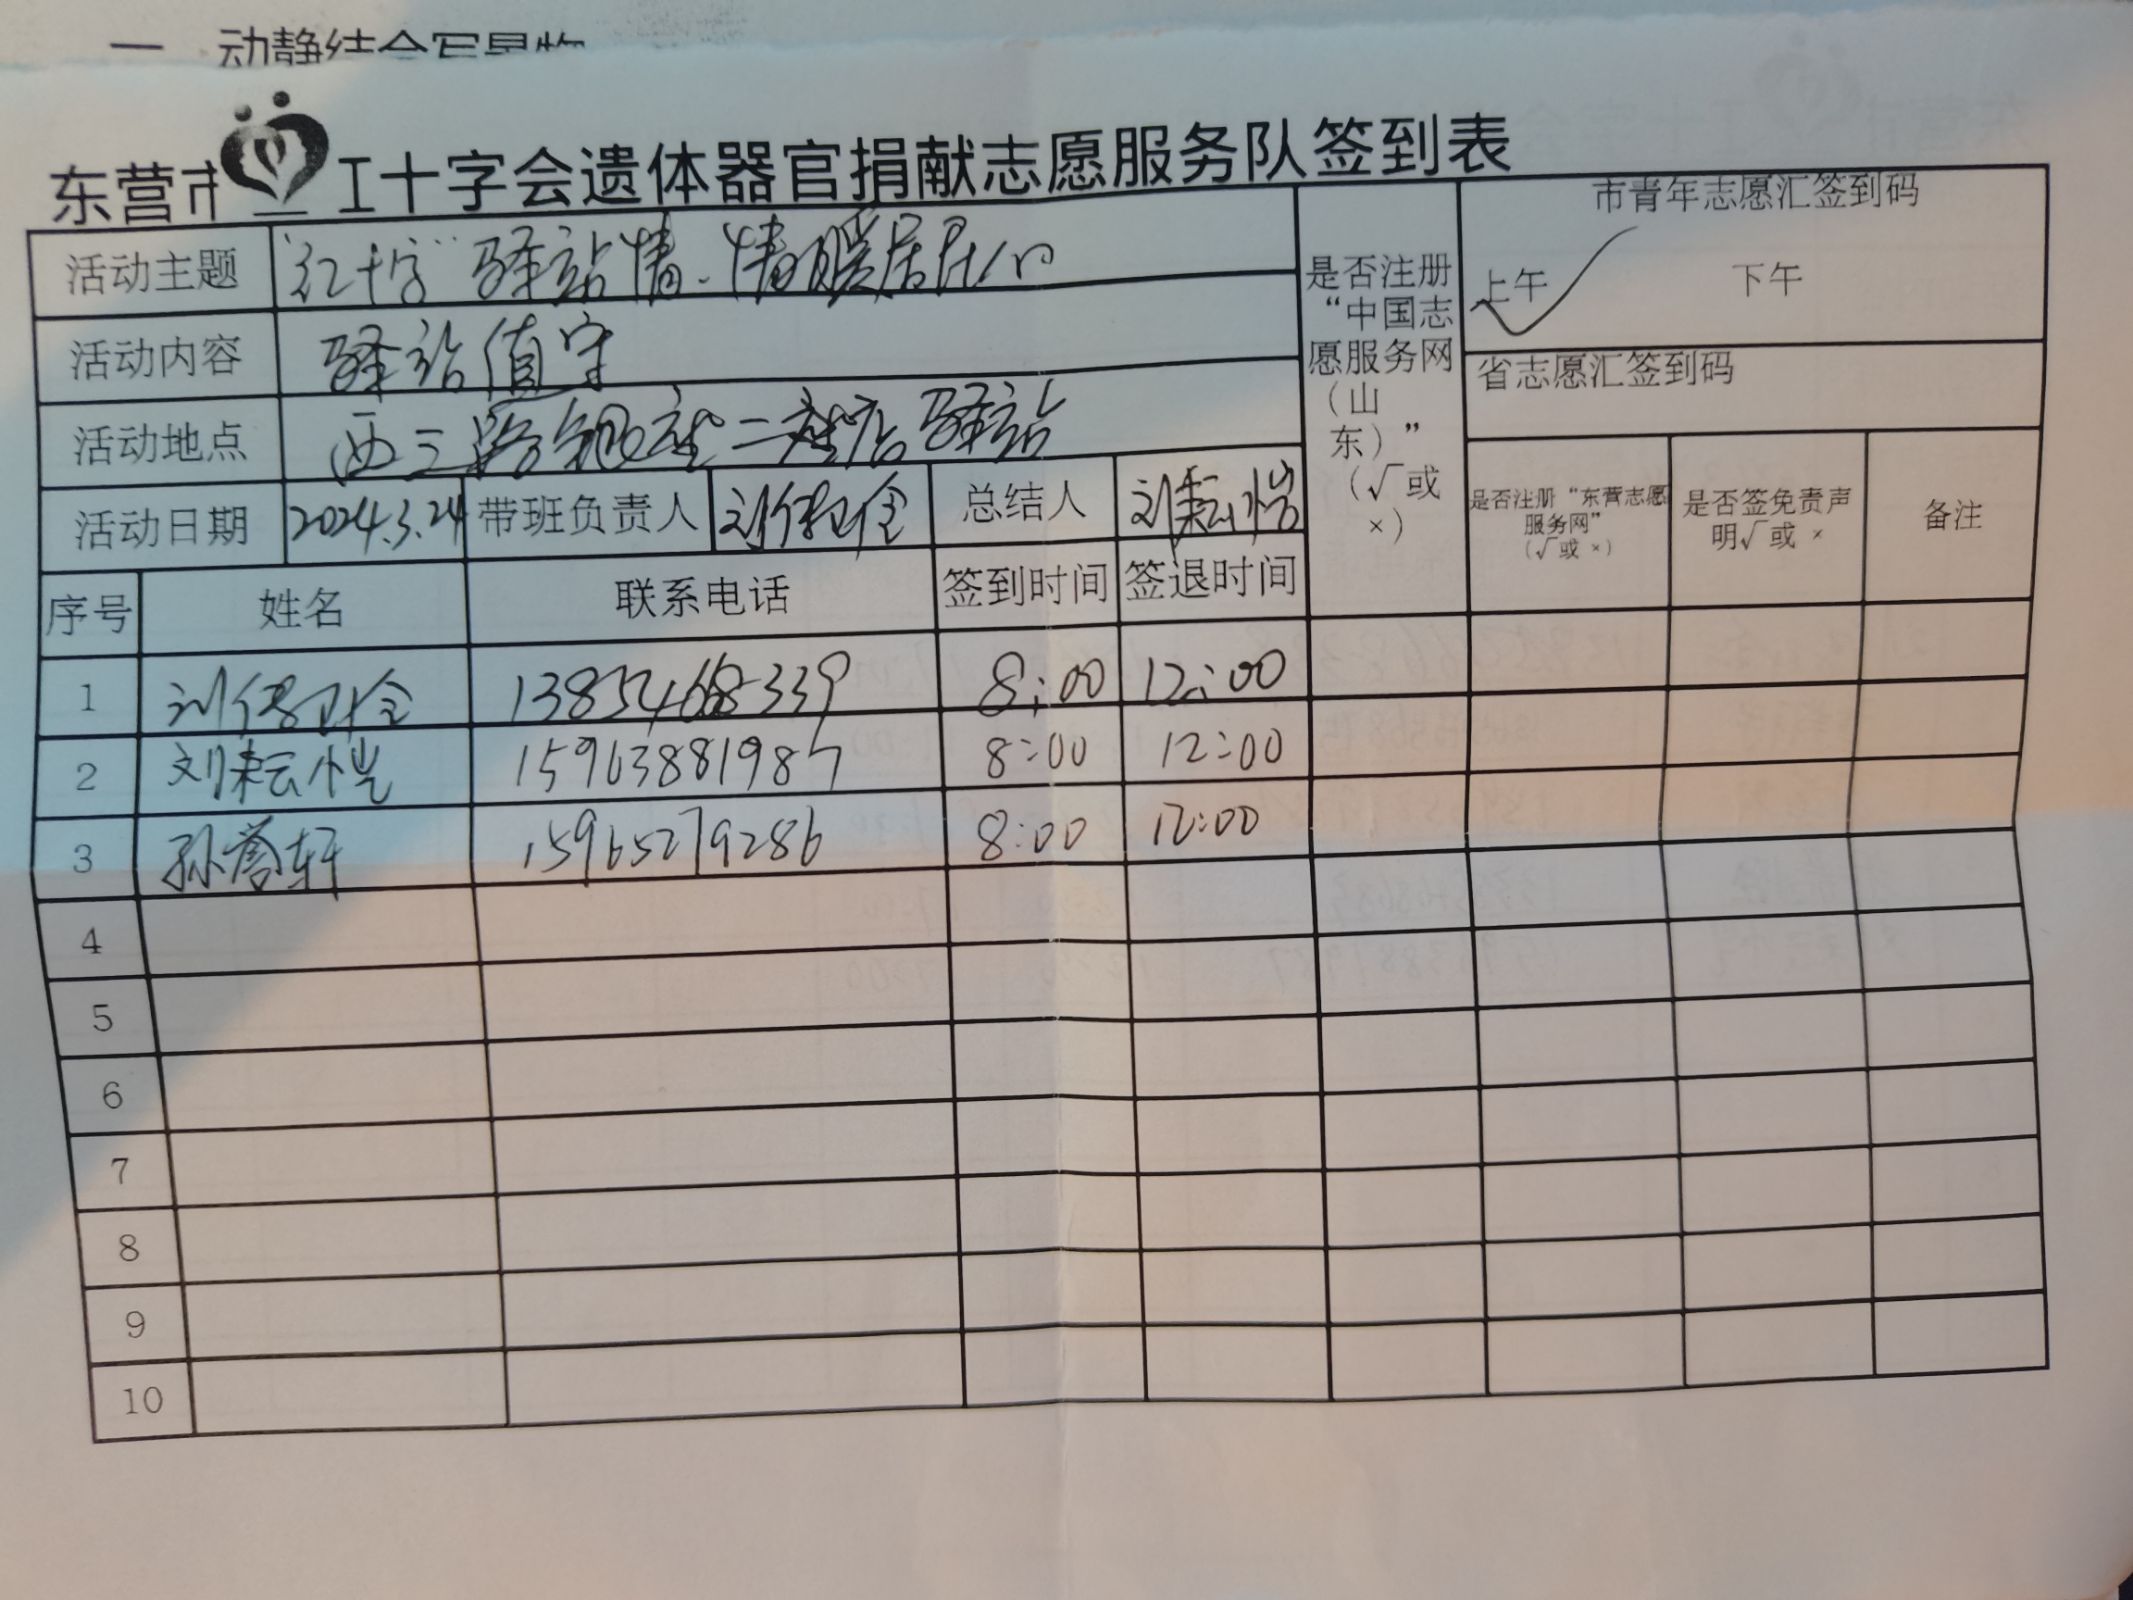 一、动静结合写景物
东营市红十字会遗体器官捐献志愿服务队签到表
活动主题 “红十字”驿站情、情暖居民心
活动内容 驿站值守
活动地点 西三路银座二楼店驿站
活动日期 2024.3.24 带班负责人 刘保卫金 总结人 刘耘恺
是否注册“中国志愿服务网(山东)”(√或×)
市青年志愿汇签到码
上午 √ 下午
省志愿汇签到码
是否注册“东营志愿服务网”(√或×) 是否签免责声明√或× 备注
序号 姓名 联系电话 签到时间 签退时间
1 13854668339 8:00 12:00
2 刘耘恺 15963881987 8:00 12:00
3 孙誉轩 15965279286 8:00 12:00
4
5
6
7
8
9
10